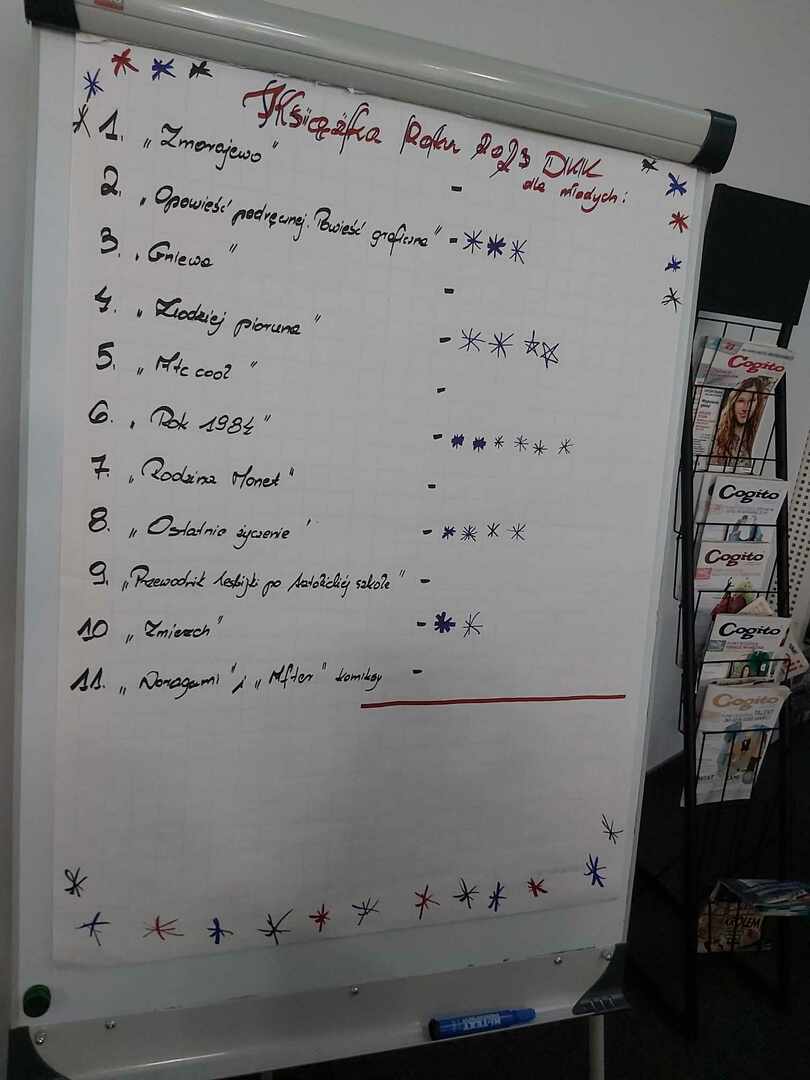 Książka Roku 2023 DKK
dla młodych:
1. „Zmorojewo" -
2. „Opowieść podręcznej. Powieść graficzna" -
3. „Gniewa" -
4. „Złodziej pioruna" -
5. „Mtc cool" -
6. „Rok 1984" -
7. „Rodzina Monet" -
8. „Ostatnie życzenie" -
9. „Przewodnik lesbijki po katolickiej szkole" -
10 „Zmierzch" -
11. „Noragami" i „After" komiksy -
Cogito
Cogito
Cogito
Cogito
Cogito
TALENT